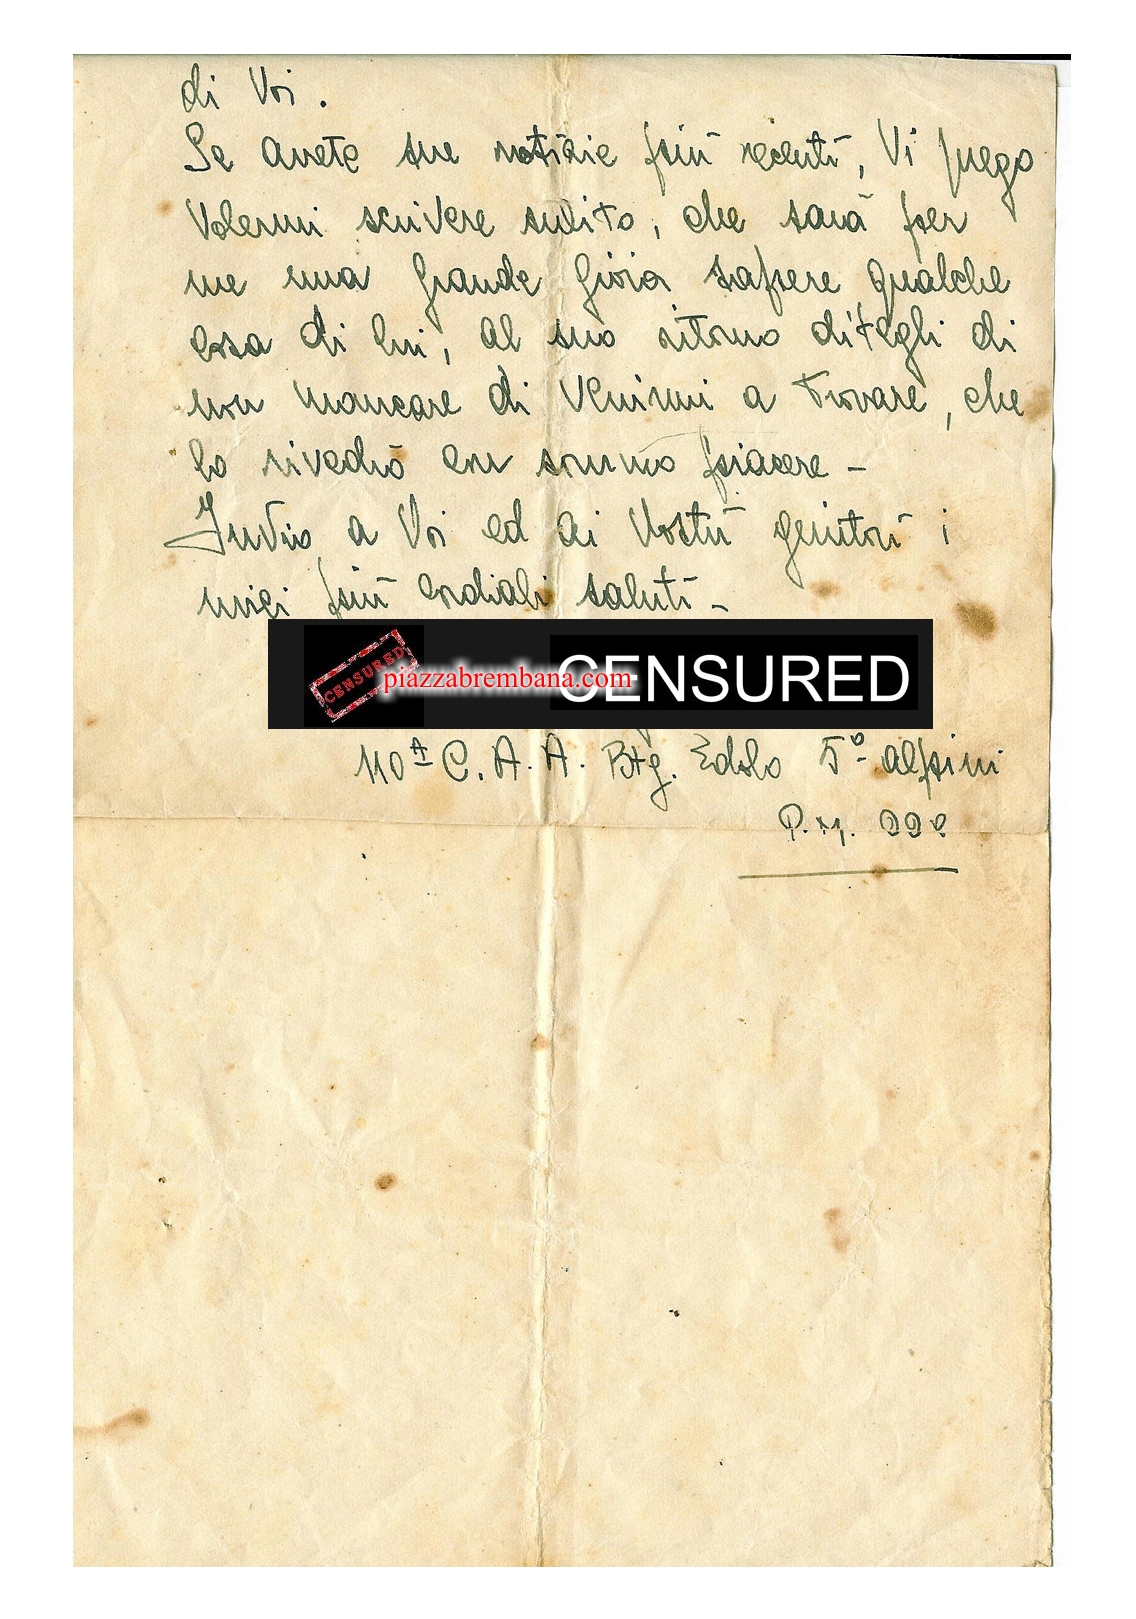 di Voi.
Se avete sue notizie più recenti, Vi prego
Volermi scrivere subito, che sarà per
me una grande gioia sapere qualche
cosa di lui, al suo ritorno ditegli di
non mancare di Venirmi a trovare, che
lo rivedrò con sommo piacere -
Invio a Voi ed ai Vostri genitori i
miei più cordiali saluti -
CENSURED
piazzabrembana.com
CENSURED
110ª C. A. A. Btg. Edolo 5º alpini
P.M.